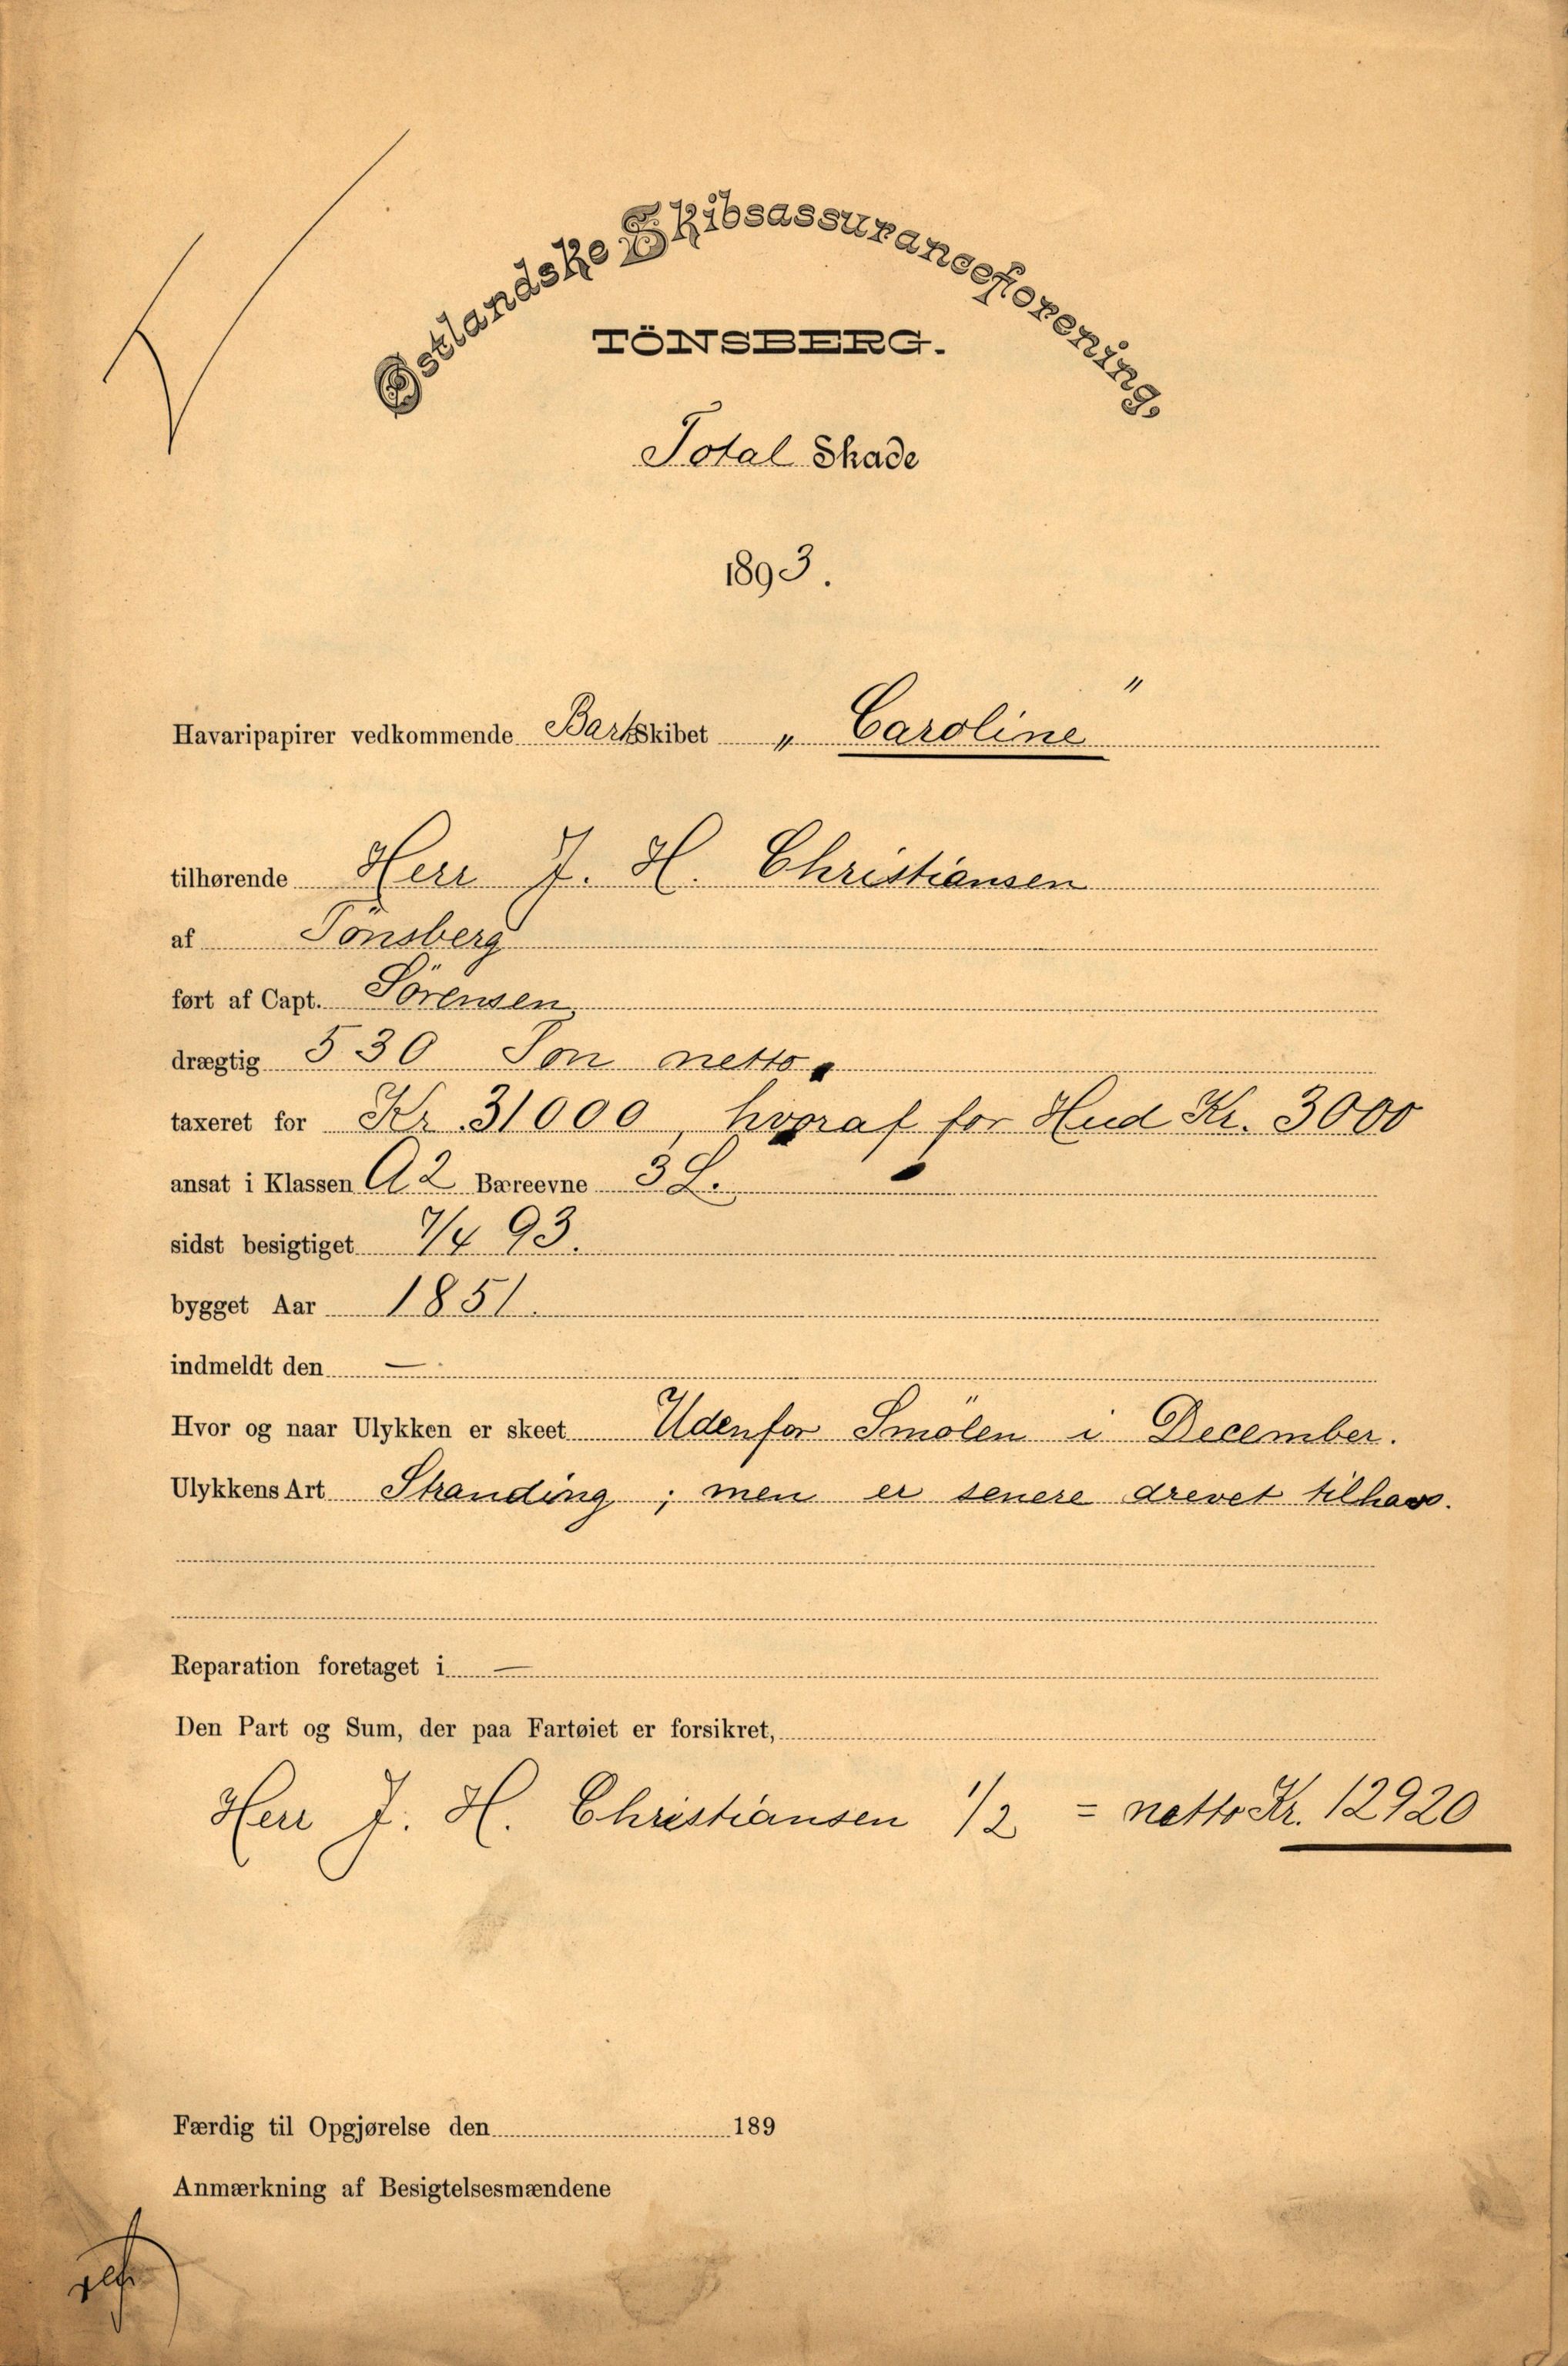 Østlandske Skibsassuranceforening,
TÖNSBERG.
Total Skade
1893.
Havaripapirer vedkommende Barkskibet „Caroline"
tilhørende Herr J. H. Christiansen
af Tönsberg
ført af Capt. Sörensen
drægtig 530 Ton netto.
taxeret for Kr. 31000, hvoraf for Hud Kr. 3000
ansat i Klassen A2 Bæreevne 3 L.
sidst besigtiget 7/4 93.
bygget Aar 1851.
indmeldt den —
Hvor og naar Ulykken er skeet Udenfor Smölen i December.
Ulykkens Art Stranding; men er senere drevet tilhavs.
Reparation foretaget i —
Den Part og Sum, der paa Fartøiet er forsikret,
Herr J. H. Christiansen 1/2 = netto Kr. 12920
Færdig til Opgjørelse den 189
Anmærkning af Besigtelsesmændene